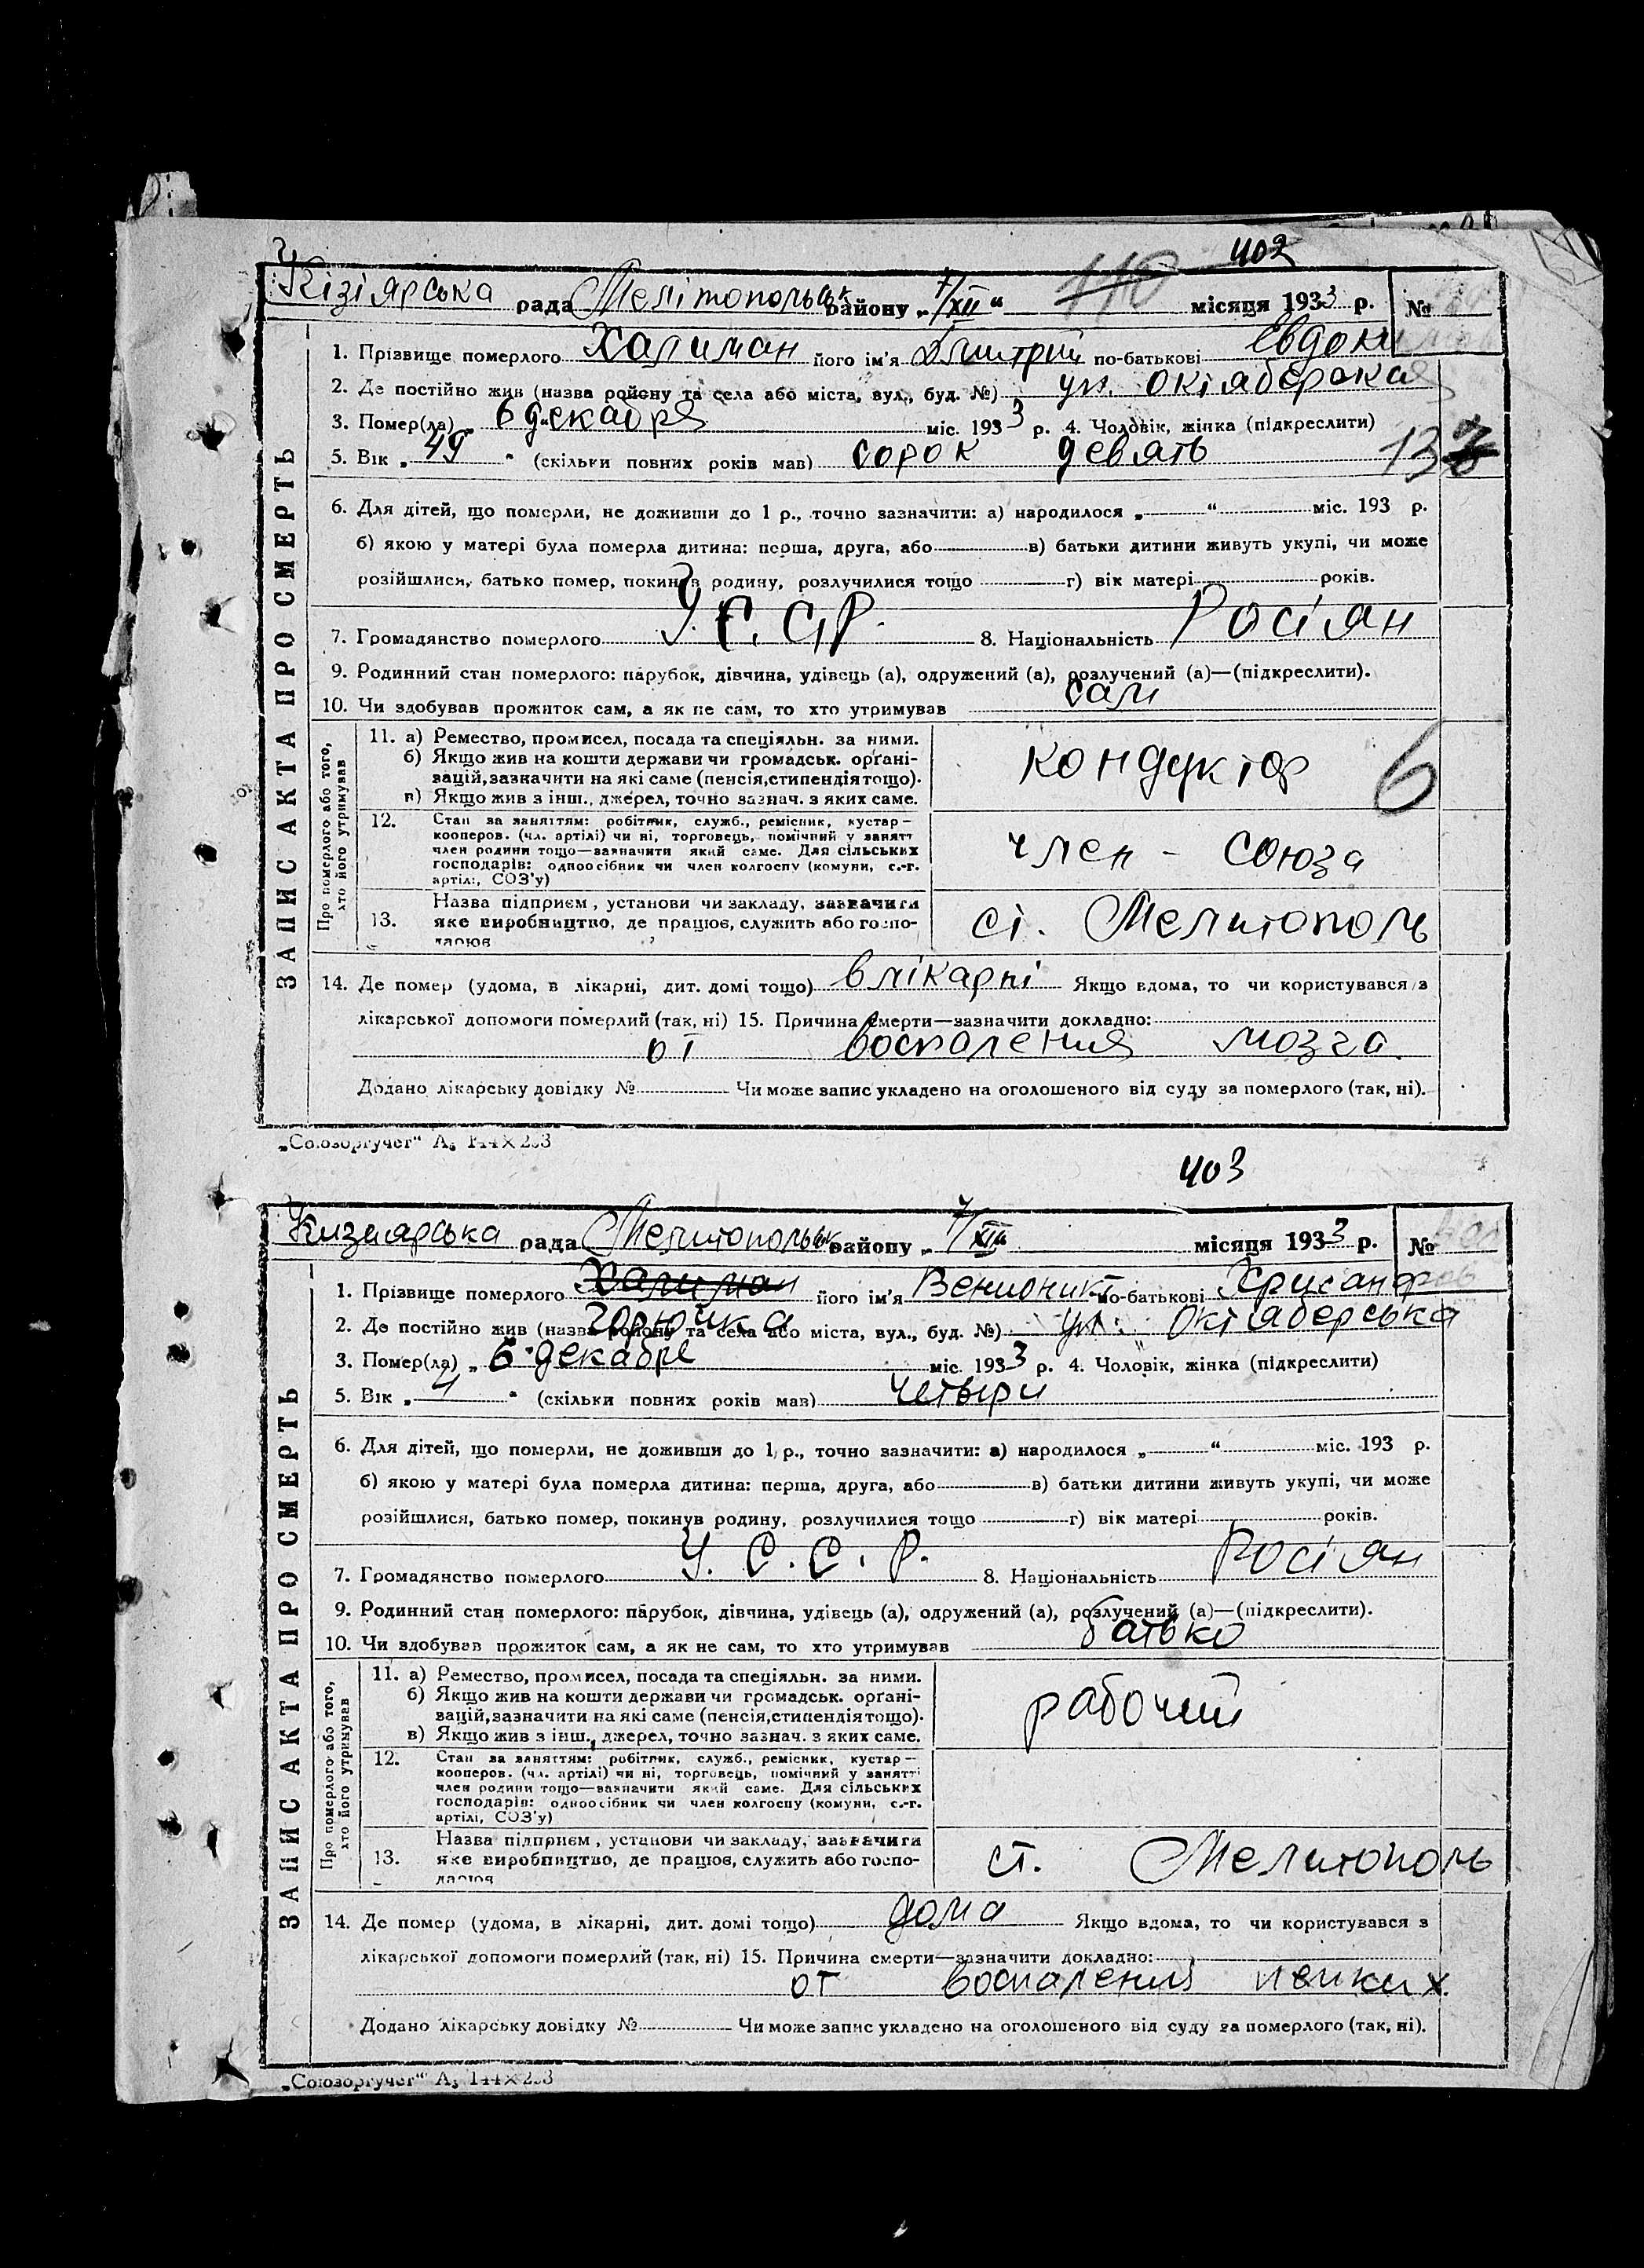 402
Кізіярська рада Мелітопольськ району „ 7/XII “ 110 місяця 1933 р. №
1. Прізвище померлого Халиман його ім'я Дмитрий по-батькові Евдоки
2. Де постійно жив (назва ройону та села або міста, вул., буд. №) ул. Октяберская
3. Помер(ла) „ 6 декабря міс. 1933 р. 4. Чоловік, жінка (підкреслити)
5. Вік „ 49 “ (скільки повних років мав) сорок девять 13
6. Для дітей, що померли, не доживши до 1 р., точно зазначити: а) народилося „ “ міс. 193 р.
б) якою у матері була померла дитина: перша, друга, або в) батьки дитини живуть укупі, чи може
розійшлися, батько помер, покинув родину, розлучилися тощо г) вік матері років.
7. Громадянство померлого У. С. С. Р. 8. Національність Росіян
9. Родинний стан померлого: парубок, дівчина, удівець (а), одружений (а), розлучений (а)—(підкреслити).
10. Чи здобував прожиток сам, а як не сам, то хто утримував сам
ЗАПИС АКТА ПРО СМЕРТЬ
Про померлого або того, хто його утримував
11. а) Ремество, промисел, посада та спеціяльн. за ними.
б) Якщо жив на кошти держави чи громадськ. орґані-
зацій, зазначити на які саме (пенсія, стипендія тощо).
в) Якщо жив з інш., джерел, точно зазнач. з яких саме.
кондуктор 6
12. Стан за заняттям: робітник, служб., ремісник, кустар—
кооперов. (чл. артілі) чи ні, торговець, помічний у занятт
член родини тощо—зазначити який саме. Для сільських
господарів: одноосібник чи член колгоспу (комуни, с.-г.
артілі, СОЗ'у)
член - союза
Назва підприєм, установи чи закладу, зазначити
13. яке виробництво, де працює, служить або госпо-
дарює
ст. Мелитополь
14. Де помер (удома, в лікарні, дит. домі тощо) в лікарні Якщо вдома, то чи користувався з
лікарської допомоги померлий (так, ні) 15. Причина смерти—зазначити докладно:
от воспаления мозга.
Додано лікарську довідку № Чи може запис укладено на оголошеного від суду за померлого (так, ні).
„Союзоргучет“ А₅ 144×203
403
Кизиярська рада Мелитопольськ району „ 7/XII місяця 1933 р. №
1. Прізвище померлого Халиман його ім'я по-батькові Хрисанф
Горючка
2. Де постійно жив (назва ройону та села або міста, вул., буд. №) ул. Октяберська
3. Помер(ла) „ 6 декабре міс. 1933 р. 4. Чоловік, жінка (підкреслити)
5. Вік „ 4 “ (скільки повних років мав) четыри
6. Для дітей, що померли, не доживши до 1 р., точно зазначити: а) народилося „ “ міс. 193 р.
б) якою у матері була померла дитина: перша, друга, або в) батьки дитини живуть укупі, чи може
розійшлися, батько помер, покинув родину, розлучилися тощо г) вік матері років.
7. Громадянство померлого У. С. С. Р. 8. Національність Росіян
9. Родинний стан померлого: парубок, дівчина, удівець (а), одружений (а), розлучений (а)—(підкреслити).
10. Чи здобував прожиток сам, а як не сам, то хто утримував батько
ЗАПИС АКТА ПРО СМЕРТЬ
Про померлого або того, хто його утримував
11. а) Ремество, промисел, посада та спеціяльн. за ними.
б) Якщо жив на кошти держави чи громадськ. орґані-
зацій, зазначити на які саме (пенсія, стипендія тощо).
в) Якщо жив з інш., джерел, точно зазнач. з яких саме.
рабочий
12. Стан за заняттям: робітник, служб., ремісник, кустар—
кооперов. (чл. артілі) чи ні, торговець, помічний у занятті
член родини тощо—зазначити який саме. Для сільських
господарів: одноосібник чи член колгоспу (комуни, с.-г.
артілі, СОЗ'у)
Назва підприєм, установи чи закладу, зазначити
13. яке виробництво, де працює, служить або госпо-
дарює
ст. Мелитополь
14. Де помер (удома, в лікарні, дит. домі тощо) дома Якщо вдома, то чи користувався з
лікарської допомоги померлий (так, ні) 15. Причина смерти—зазначити докладно:
от воспаления
Додано лікарську довідку № Чи може запис укладено на оголошеного від суду за померлого (так, ні).
„Союзоргучет“ А₅ 144×203